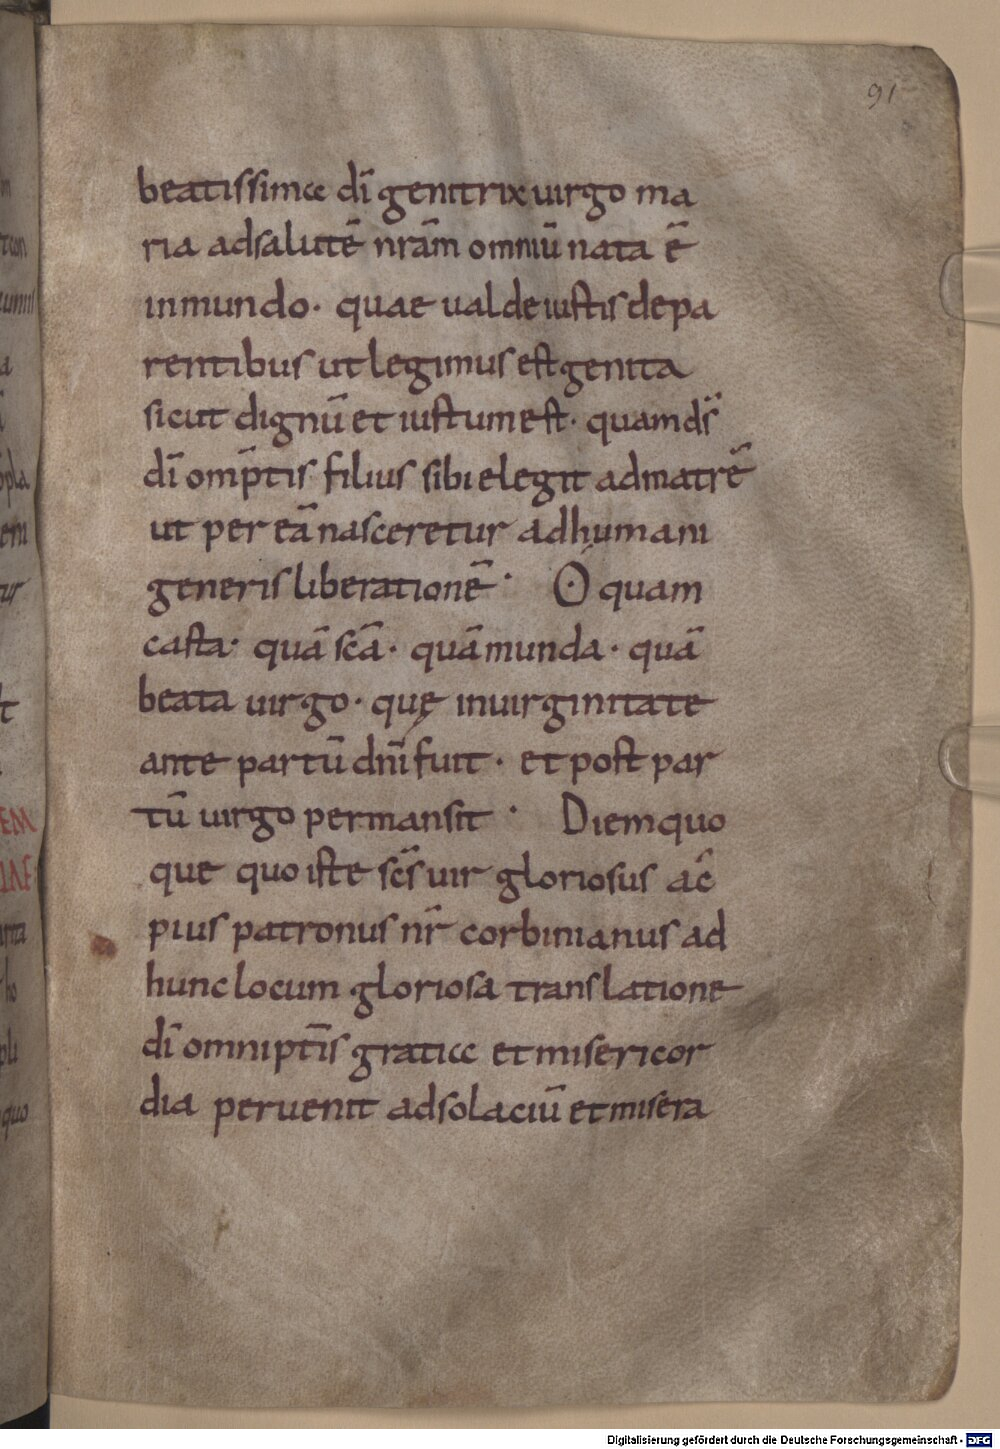 91
beatissimae dī genitrix uirgo ma
ria adsalutē nrām omniū nata ē
inmundo· quae ualde iustis depa
rentibus ut legimus est genita
sicut dignū et iustum est· quam ds̄
dī omp̄tis filius sibi elegit admatrē
ut per eā nasceretur ad humani
generis liberationē· O quam
casta· quā scā· quā munda· quā
beata uirgo· quę inuirginitate
ante partū dnī fuit· et post par
tū uirgo permansit· Diemquo
que quo iste scs̄ uir gloriosus ac̄
pius patronus nr̄ corbinianus ad
hunc locum gloriosa translatione
dī omnipt̄is gratiae et misericor
dia peruenit adsolaciū et misera
Digitalisierung gefördert durch die Deutsche Forschungsgemeinschaft - DFG